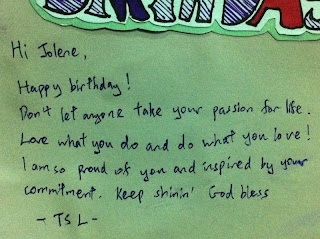 BIRTHDAY
Hi Jolene,
Happy birthday!
Don't let anyone take your passion for life.
Love what you do and do what you love!
I am so proud of you and inspired by your
commitment. Keep shinin' God bless
- TSL -